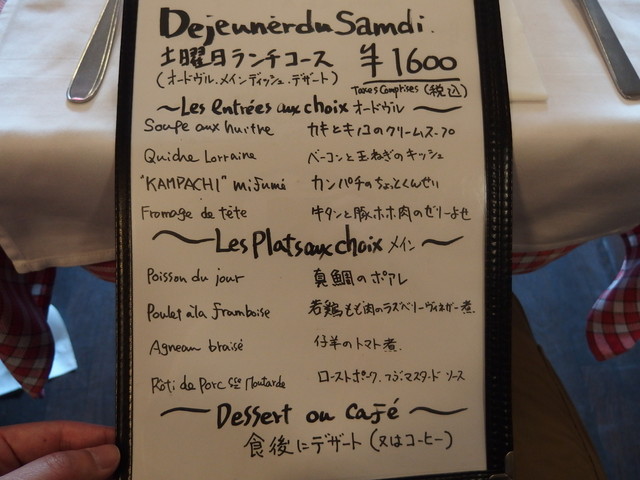 Dejeuner du Samdi.
土曜日ランチコース ¥1600
(オードヴル.メインディッシュ.デザート) Taxes Comprises (税込)
~Les entrées aux choix オードヴル~
Soupe aux huitre カキとキノコのクリームスープ
Quiche Lorraine ベーコンと玉ねぎのキッシュ
"KAMPACHI" mifumé カンパチのちょっとくんせい
Fromage de tête 牛タンと豚ホホ肉のゼリーよせ
~Les Plats aux choix メイン~
Poisson du jour 真鯛のポアレ
Poulet à la framboise 若鶏もも肉のラズベリーヴィネガー煮.
Agneau braisé 仔羊のトマト煮.
Rôti de Porc sce Moutarde ローストポーク.マスタードソース
~Dessert ou Café~
食後にデザート(又はコーヒー)